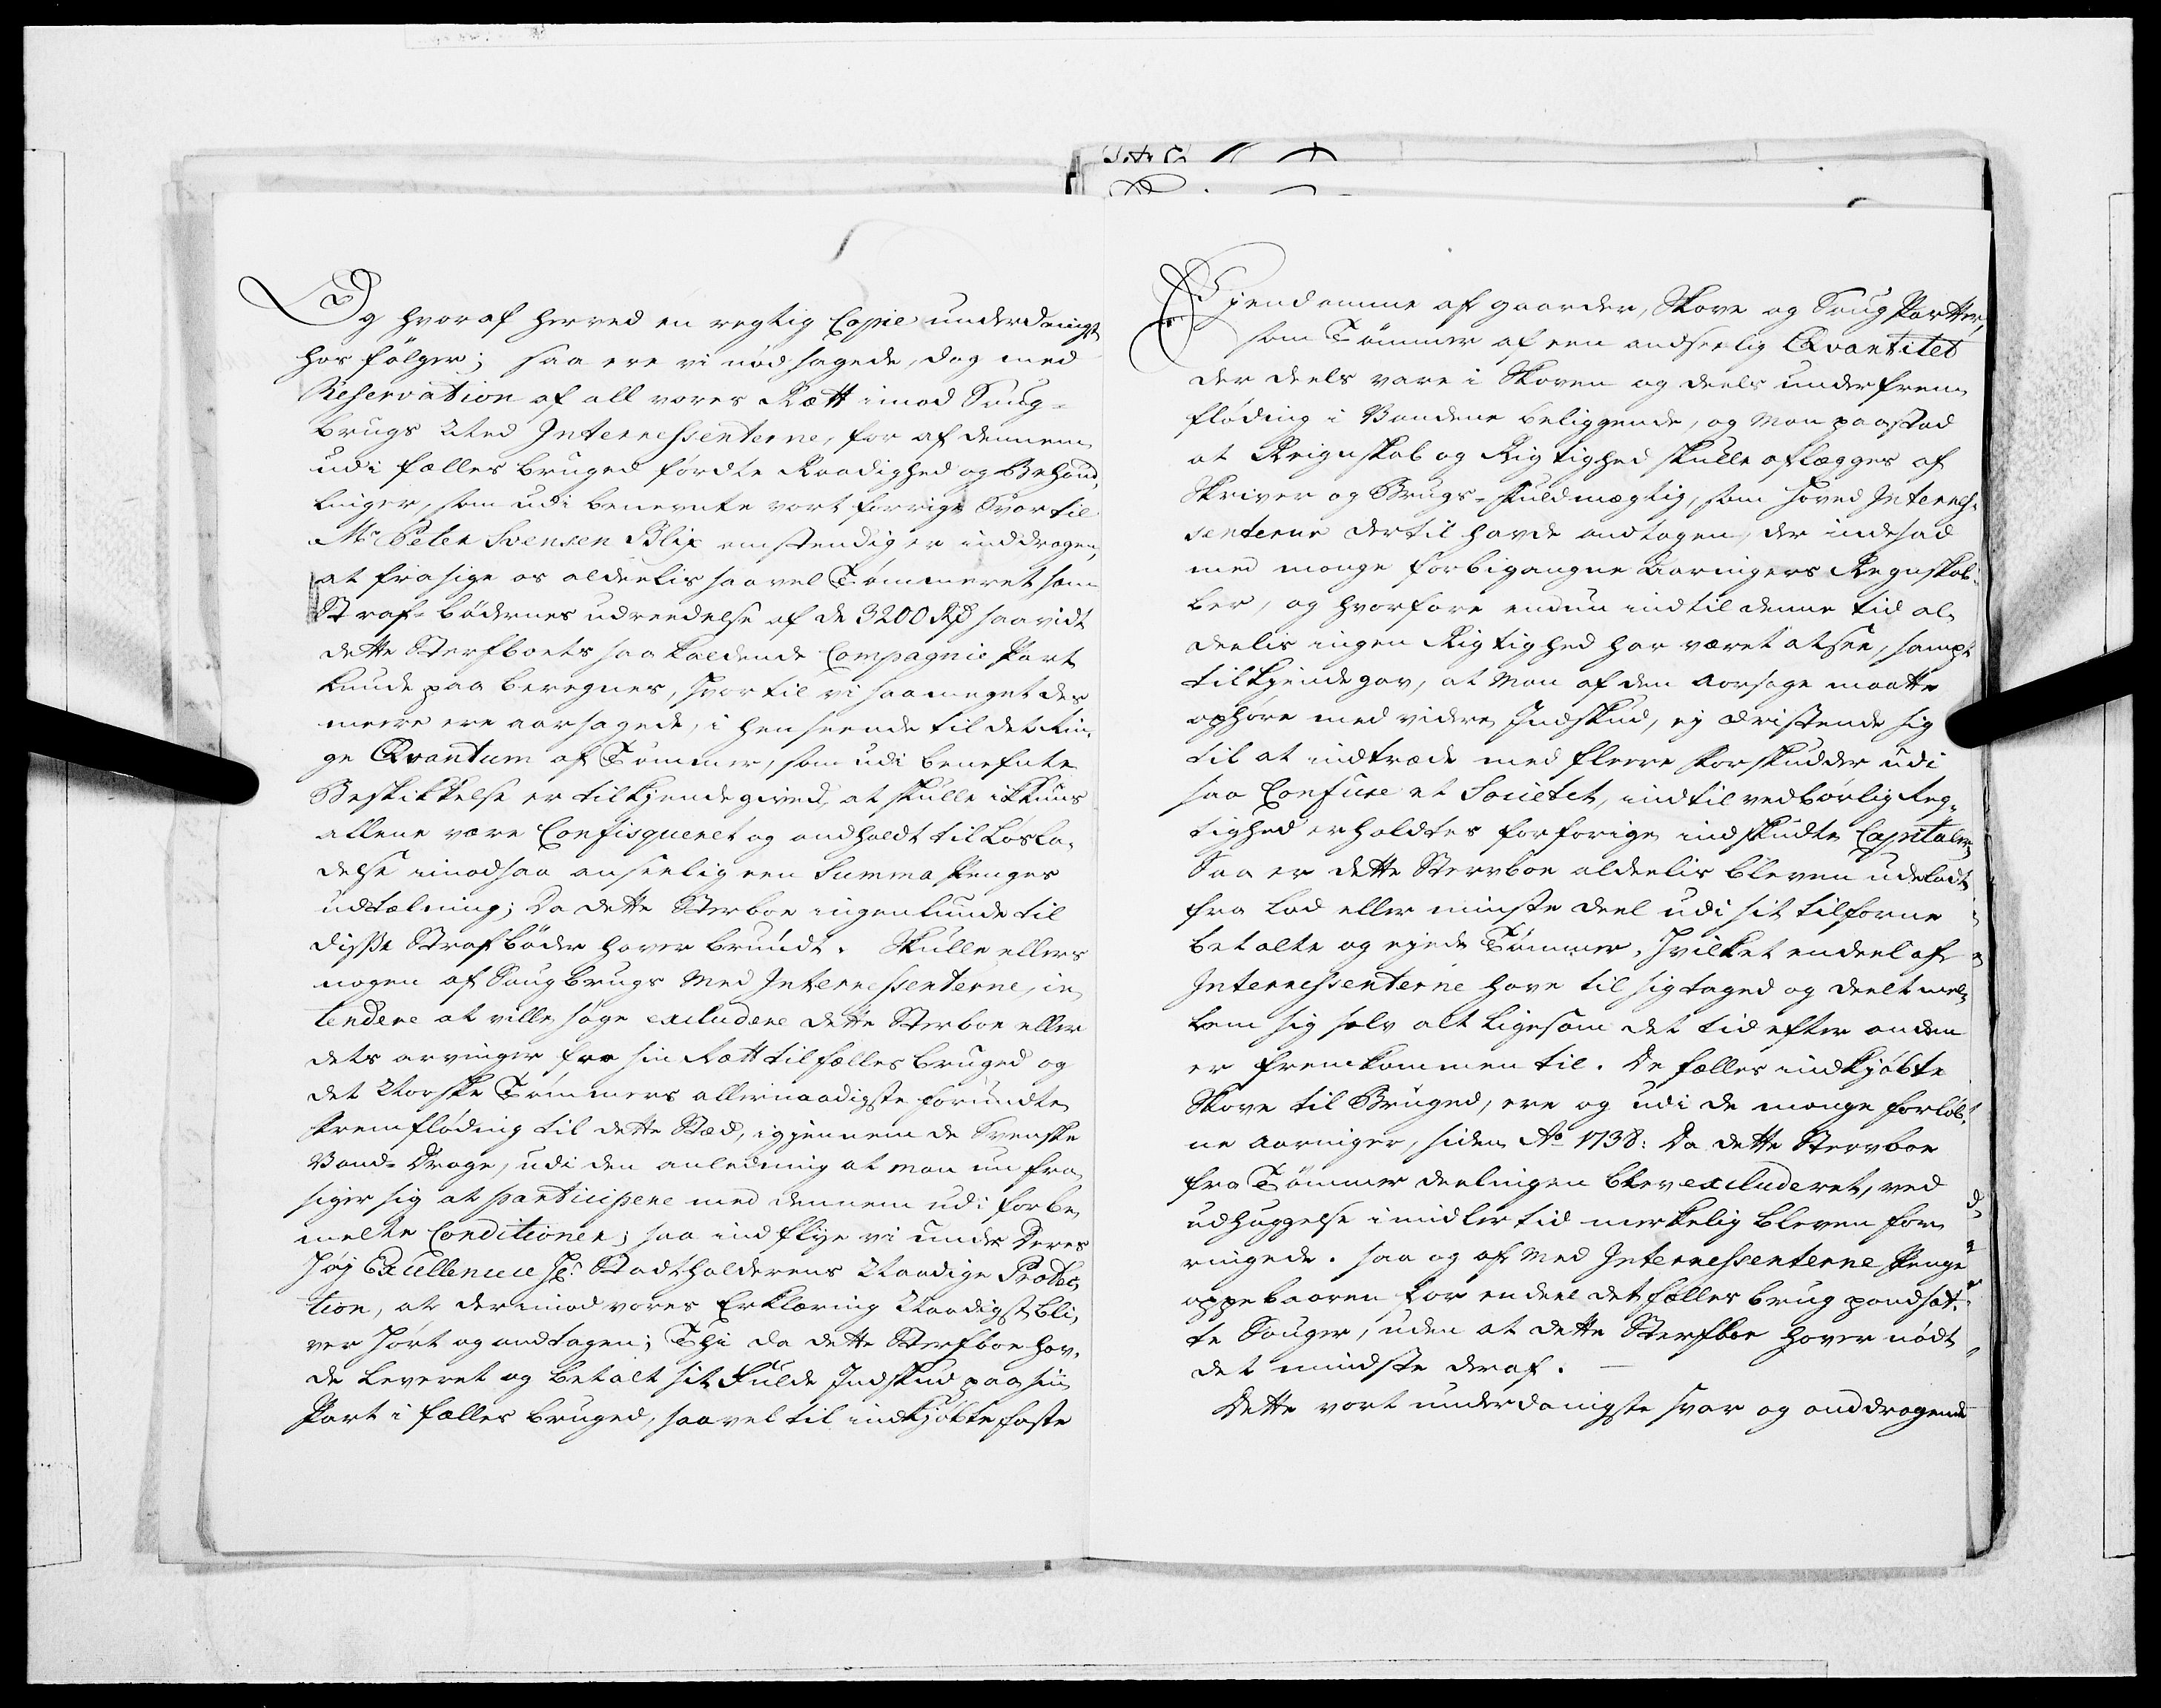 Og hvoraf herved en rigtig Copie underdanigst
hos følger; saa ere vi nødsagede, dog med
Reservation af all vores Rætt imod Saug-
brugs Med Interessenterne, for af dennem
udi fælles bruged førdte Raadighed og Behand,
linger, som udi benevnte vort forrige Svar til
Mr Peter Svensen Blix omstendig er inddragen,
at frasige os aldeelis saavel Tømmeret som
Straf-bødernes udreedelse af de 3200 Rd saavidt
dette Sterfboets saakaldende Compagnie Part
kunde paa beregnes, hvortil vi saameget des
meere ere aarsagede, i henseende til det rin,
ge Qvantum af Tømmer, som udi benefnte
Beskikkelse er tilkjendegived, at skulle ikkuns
allene være Confisqueret og andholdt til Løsla,
delse imod saa anseelig een Summa Penges
udtælning; Da dette Sterboe ingenlunde til
disse Strafbøder haver brudt. Skulle ellers
nogen af Saugbrugs Med Interessenterne, in,
tendere at ville søge excludere dette Sterboe eller
dets arvinger fra sin Rætt til fælles bruged og
det Norske Tømmers allernaadigste forundte
fremfløding til dette Stæd, igjennem de Svenske
Vand-Drage, udi den anledning at man nu fra,
siger sig at participere med dennem udi forbe,
melte Conditioner; saa indflye vi under Deres
Høj Excellence Hr Stadtholderens Naadige Protec,
tion, at derimod vores Erklæring Naadigst bli,
ver hørt og andtagen; Thi da dette Sterfboe hav,
de leveret og betalt sit Fulde Indskud paa sin
Part i fælles bruged, saavel til indkjøbte faste
Ejendomme af gaarder, Skove og Saug Parter,
som Tømmer af een andseelig Qvantitet
der deels vare i Skoven og deels under frem,
fløding i Vandene beliggende, og Man paastod
at Reignskab og Rigtighed skulle aflægges af
Skriver og Brugs-fuldmægtig, som hoved Interes,
senterne dertil havde andtagen, der indesad
med mange forbigangne Aaringers Regnskab,
ber, og hvorfore endnu indtil denne tid al,
deelis ingen Rigtighed har været at see, sampt
tilkjendegav, at Man af den Aarsage maatte
ophøre med videre Indskud, ej dristende sig
til at indtræde med fleere forskudder udi
saa Confuse et Societet, indtil vedbørlig Rig,
tighed erholdtes for forige indskudte Capitaler,
Saa er dette Stervboe aldeelis bleven udeladt
fra Lod eller minste deel udi sit tilforne
betalte og ejede Tømmer, hvilket endeel af
Interessenterne have til sig taged og deelt mel,
lem sig selv alt ligesom det tid efter anden
er fremkommen til. De fælles indkjøbte
Skove til Bruged, ere og udi de mange forløb,
ne Aaringer, siden Ao 1738: Da dette Stervboe
fra Tømmer deelingen blev excluderet, ved
udhuggelse imidlertid merkelig bleven for,
ringede. saa og af Med Interessenterne Penge
oppebaaren for en deel det fælles brug pandsat,
te Sauger, uden at dette Sterfboe haver nødt
det mindste deraf. —
Dette vort underdanigste svar og anddragende